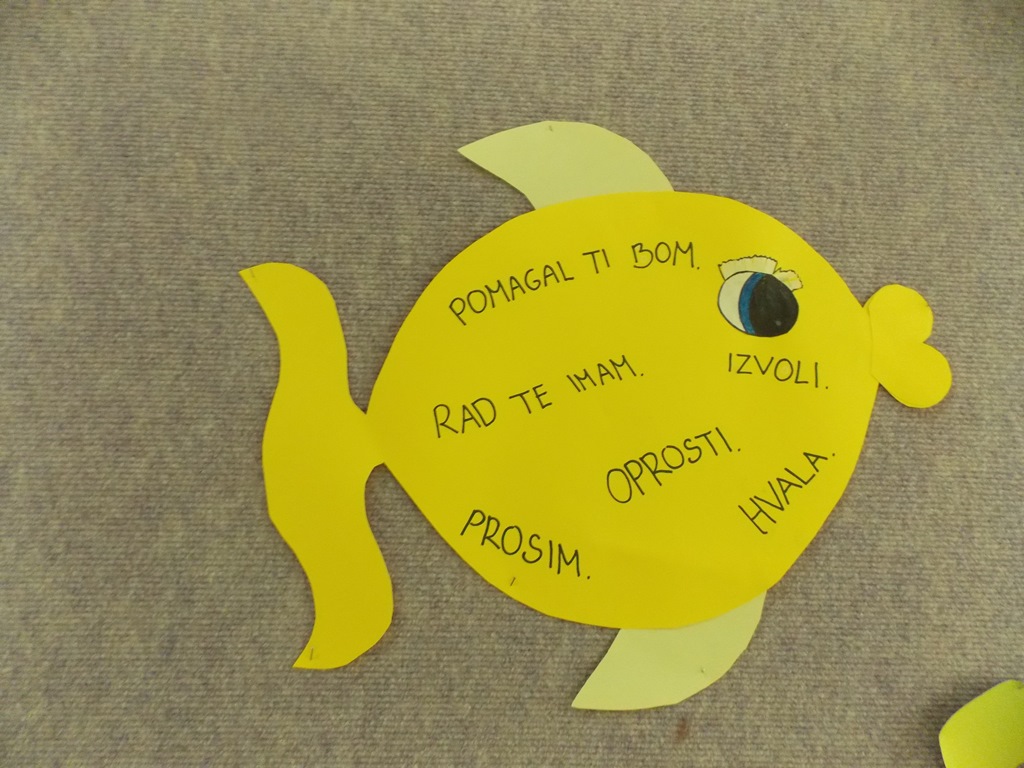 POMAGAL TI BOM.
RAD TE IMAM.
IZVOLI.
OPROSTI.
HVALA.
PROSIM.